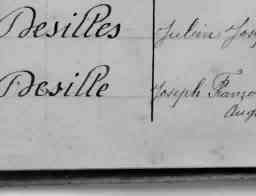 Desilles Julien Jos
Desille Joseph Franço
Aug